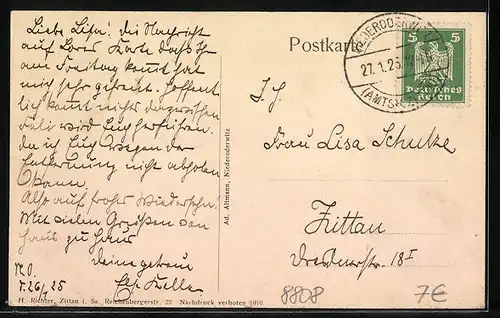 Liebe Lisa! die Nachricht
auf Deiner Karte dass Ihr
am Freitag kommt hat
mich sehr gefreut. Hoffent
lich kommt nichts dazwischen
wird Euch
da ich Euch wegen der
Entfernung nicht abholen
kann.
Also auf frohes Wiedersehn!
Mit vielen Grüßen von
Haus zu Haus
Deine getreue
N.O.
d. 26/1 25
H. Richter, Zittau i. Sa., Reichenbergerstr. 22 Nachdruck verboten 1910
Ad. Altmann, Niederoderwitz
Postkarte
27.1.25
(AMTSH.
5 5
Deutsches
Reich
Frau Lisa Schulze
Zittau
18 I
8808
7€